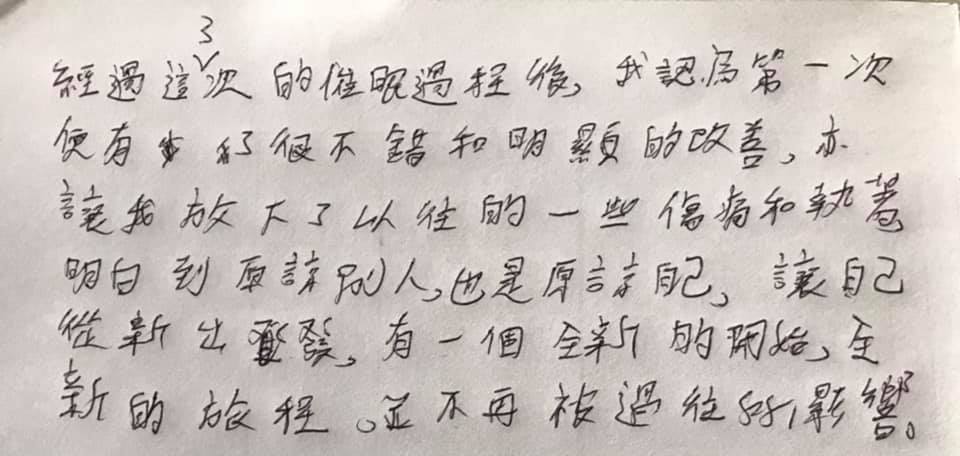 經過這3次的催眠過程後，我認為第一次
便有了很不錯和明顯的改善，亦
讓我放下了以往的一些傷痛和執著
明白到原諒別人，也是原諒自己，讓自己
從新出發，有一個全新的開始，全
新的旅程。並不再被過往所影響。